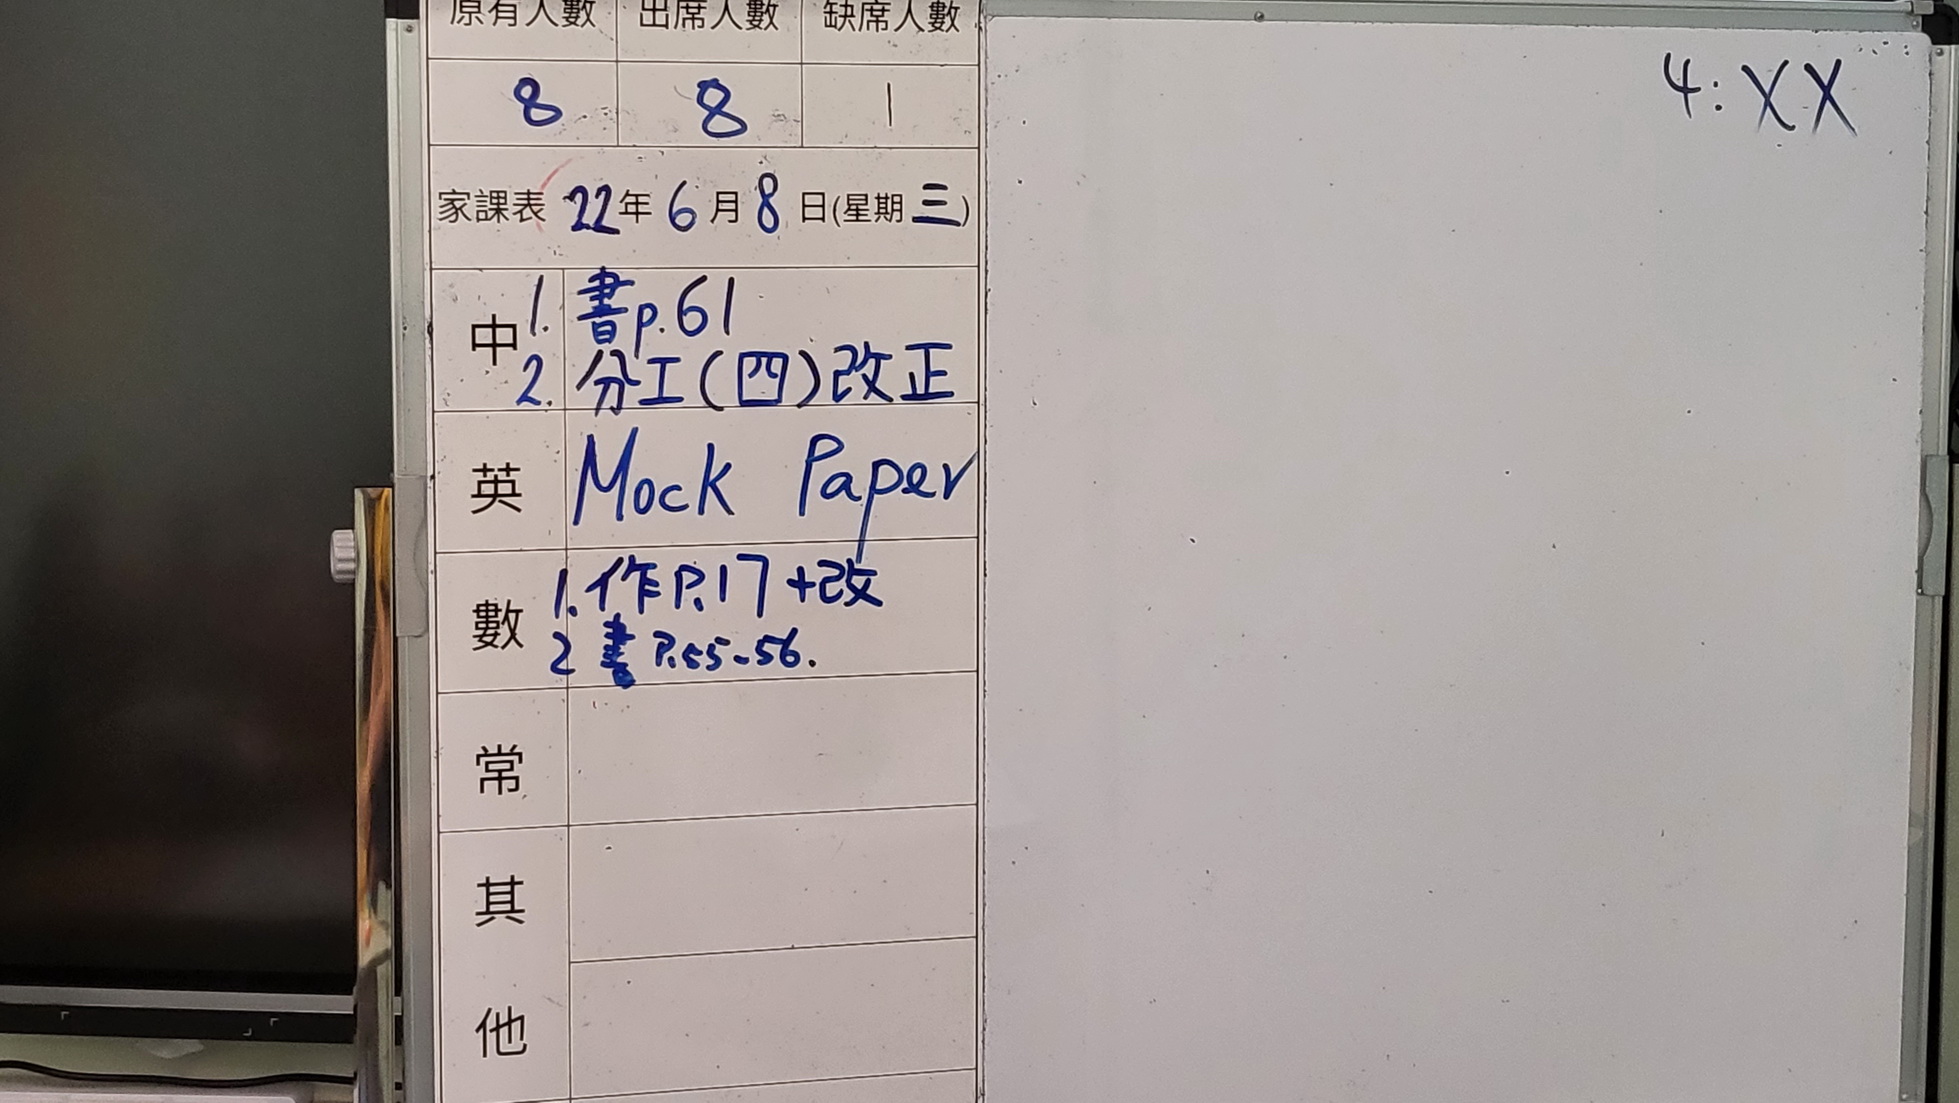 原有人數 出席人數 缺席人數
8 8 1
家課表 22年6月8日(星期三)
中 1. 書p.61
2. 分工(四)改正
英 Mock Paper
數 1. 作P.17+改
2 書 P.55-56.
常
其
他
4:XX